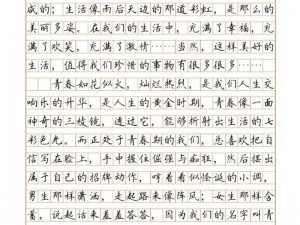 成的；生活像雨后天边的那道彩虹，是那么的
美丽多姿。在我们的生活中，充满了幸福，充
满了欢笑，充满了激情……当然，这样美好的
生活，值得我们珍惜的事物有很多很多…
青春如花似火，灿烂热烈，是我们人生交
响作的升华，是人生的黄金时期，青春像一面
神奇的三棱镜，透过它，能够折射出生活的七
彩色光。而正处于青春期的我们，总喜欢把自
信写在脸上，手中握住倔强与痴狂，然后摆出
属于自己的招牌动作，哼着看似怪诞的小调，
男生那样潇洒，走起路来像阵风；女生那样含
蓄，说起话来羞羞答答，因为我们的名字叫青